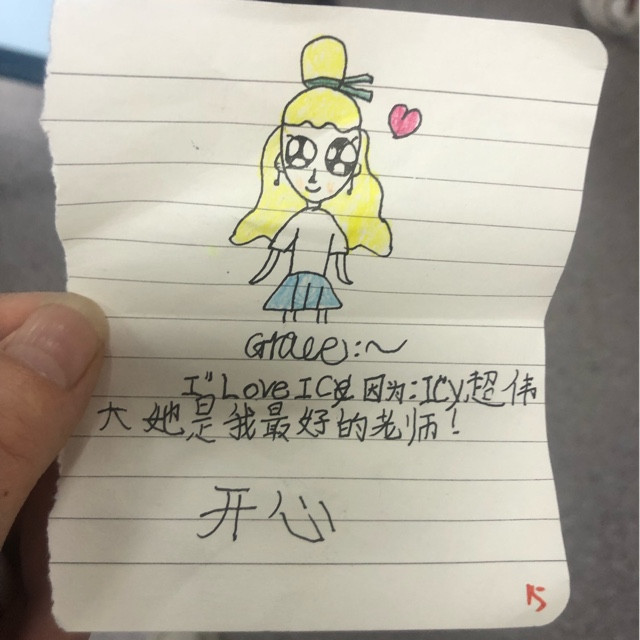 Grace:~
I" Love ICy 因为:ICy 超伟
大她是我最好的老师!
开心
15